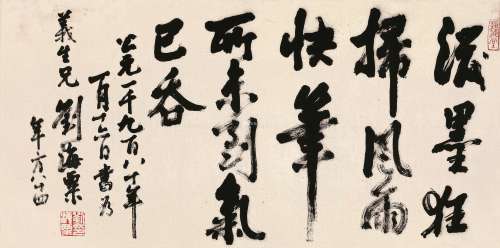 潑墨狂
掃風雨
快筆
所未到氣
已吞
公元一千九百八十年
一月十六日書为
義生兄 劉海粟
年方八十四